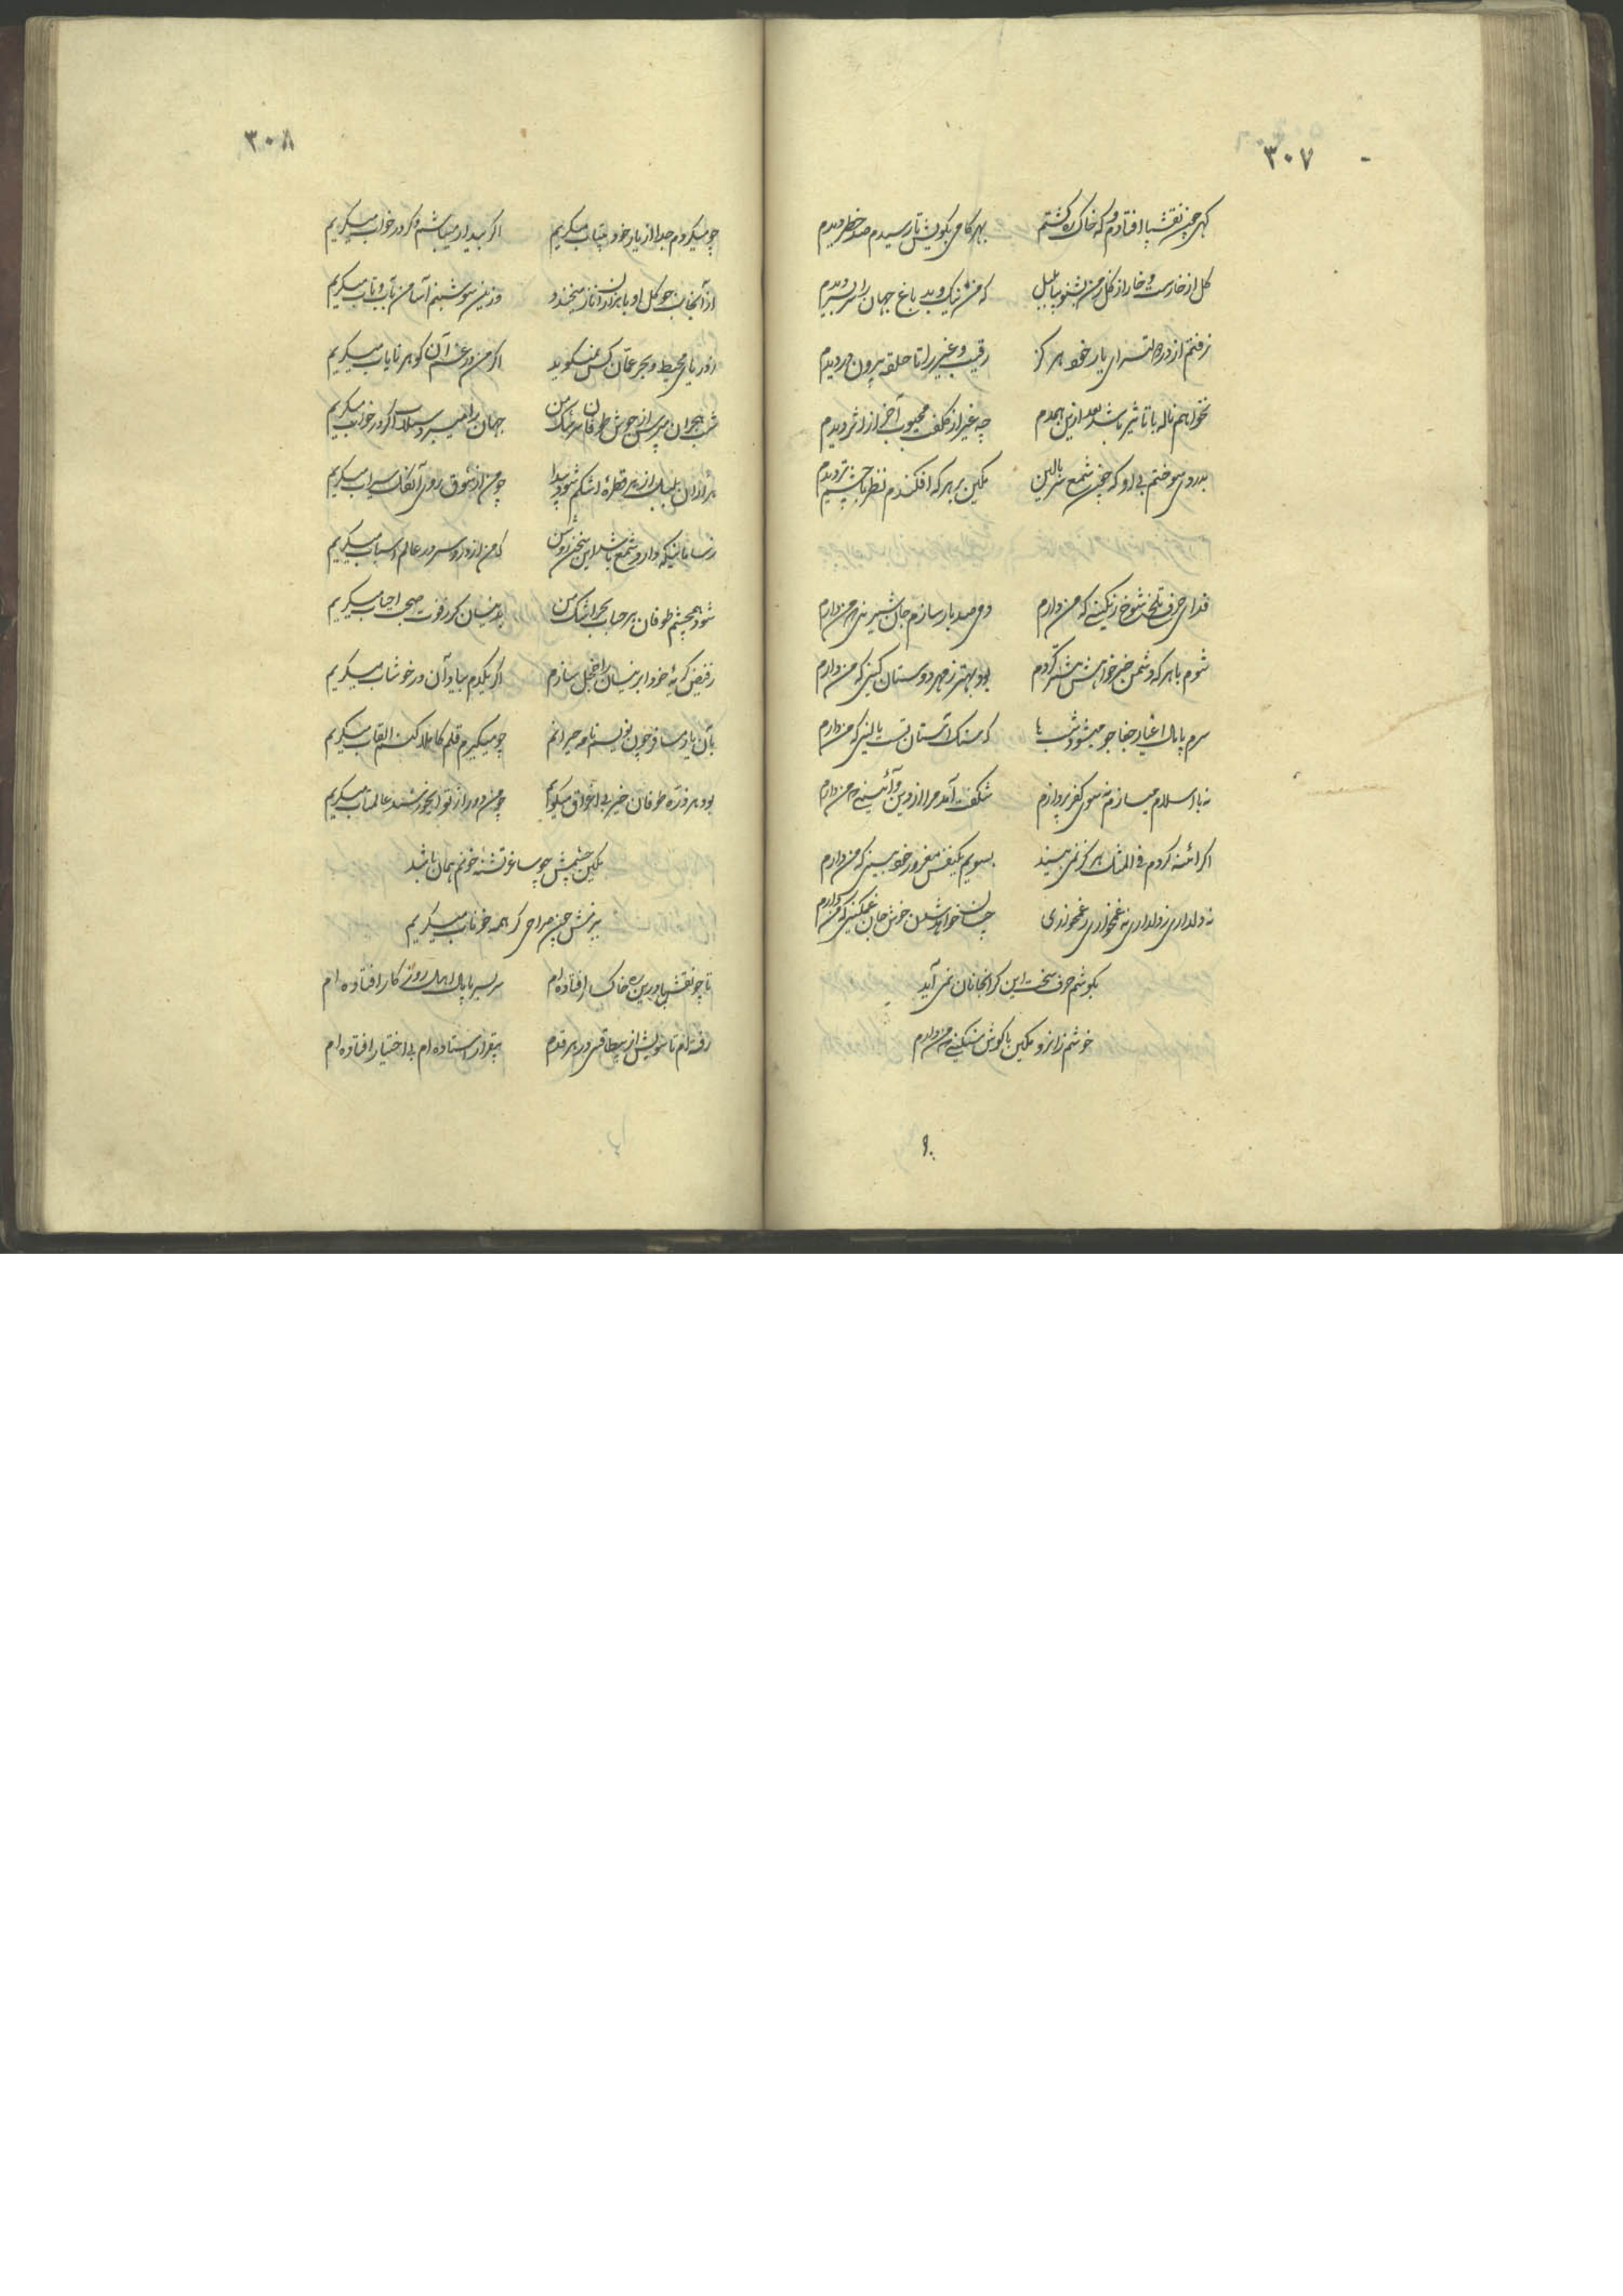 ۳۰۷
کهی چون نقش پا افتادم و که خاک ره کشتم بهر کامی بکویش تا رسیدم صد خطر دیدم
کل از خارست و خار از کل ز من بشنو بیا بلبل که من نیک و بد باغ جهان را سربسر دیدم
نرفتم از در دولتسرای یار خود هر کز رقیب و غیر را تا حلقه بیرون در دیدم
نخواهم ناله با تاثیر باشد بعد ازین همدم چه غیر از کلفت محبوب آخر از اثر دیدم
بدردی سوختم بی او که چون شمع سر بالین مکین بر هر که افکندم نظر با چشم تر دیدم
فدای حرف تلخ شوخ رنکینی که من دارم دمی صد بار سازم جان شیرینی که من دارم
شوم با هر که دشمن خیر خواهش بیشتر کردم بود بهتر ز مهر دوستان کینی که من دارم
سرم پامال اغیار جفاجو میشود شب‌ها که سنک آستان تست بالینی که من دارم
نه با اسلام میسازم نه سوی کفر پردازم شکفت آید مرا از دین و آئینی که من دارم
اگر آئنه کردم فی المثل هر کز نمی بیند بسویم یکنفس مغرور خودبینی که من دارم
نه دلداری ز دلداری نه غمخواری ز غمخواری چسان خواهد شدن خوش جان غمکینی که من دارم
بکوشم حرف سخت این کرانجانان نمی آید
خوشم زانرو مکین با کوش سنکینی که من دارم
۳۰۸
چو میکردم جدا از یار خود بیتاب میکریم اکر بیدار میباشم و کر در خواب میکریم
از آنجانب چو کل او با هزاران ناز میخندد وزین سو شبنم آسا من بآب و تاب میکریم
ز دریای محیط و بحر عمان کس نمیکوید اکر من در غم آن کوهر نایاب میکریم
شب هجران مپرس از جوش طوفان سرشک من جهان را میبرد سیلاب اکر در خواب میکریم
هزاران بلبل از هر قطرهٔ اشکم شود پیدا چو من از شوق روی آن کل سیراب میکریم
ز سامانیکه دارد شمع باشد این سخن روشن که من از درد سر در عالم اسباب میکریم
شود همچشم طوفان هر حباب بحر اشک من بدینسان کر ز فوت صحبت احباب میکریم
ز فیض کریهٔ خود ابر نیسان را خجل سازم اکر یکدم بیاد آن در خوشاب میکریم
بآن یار مسافر چون نویسم نامه حیرانم چو میکیرم قلم کاغذ بکف القاب میکریم
بود هر ذره طوفان خیز بی اغراق میکویم چو من دور از تو ای خورشید عالمتاب میکریم
مکین چشمش چو ساغر تشنهٔ خونم همان باشد
ببزمش چون صراحی کر همه خوناب میکریم
تا چو نقش پا درین ره خاکسار افتاده ام سر بسر پامال اهل روزکار افتاده ام
رفته ام تا سویش از بیطاقتی در هر قدم بیقرار استاده ام بی اختیار افتاده ام